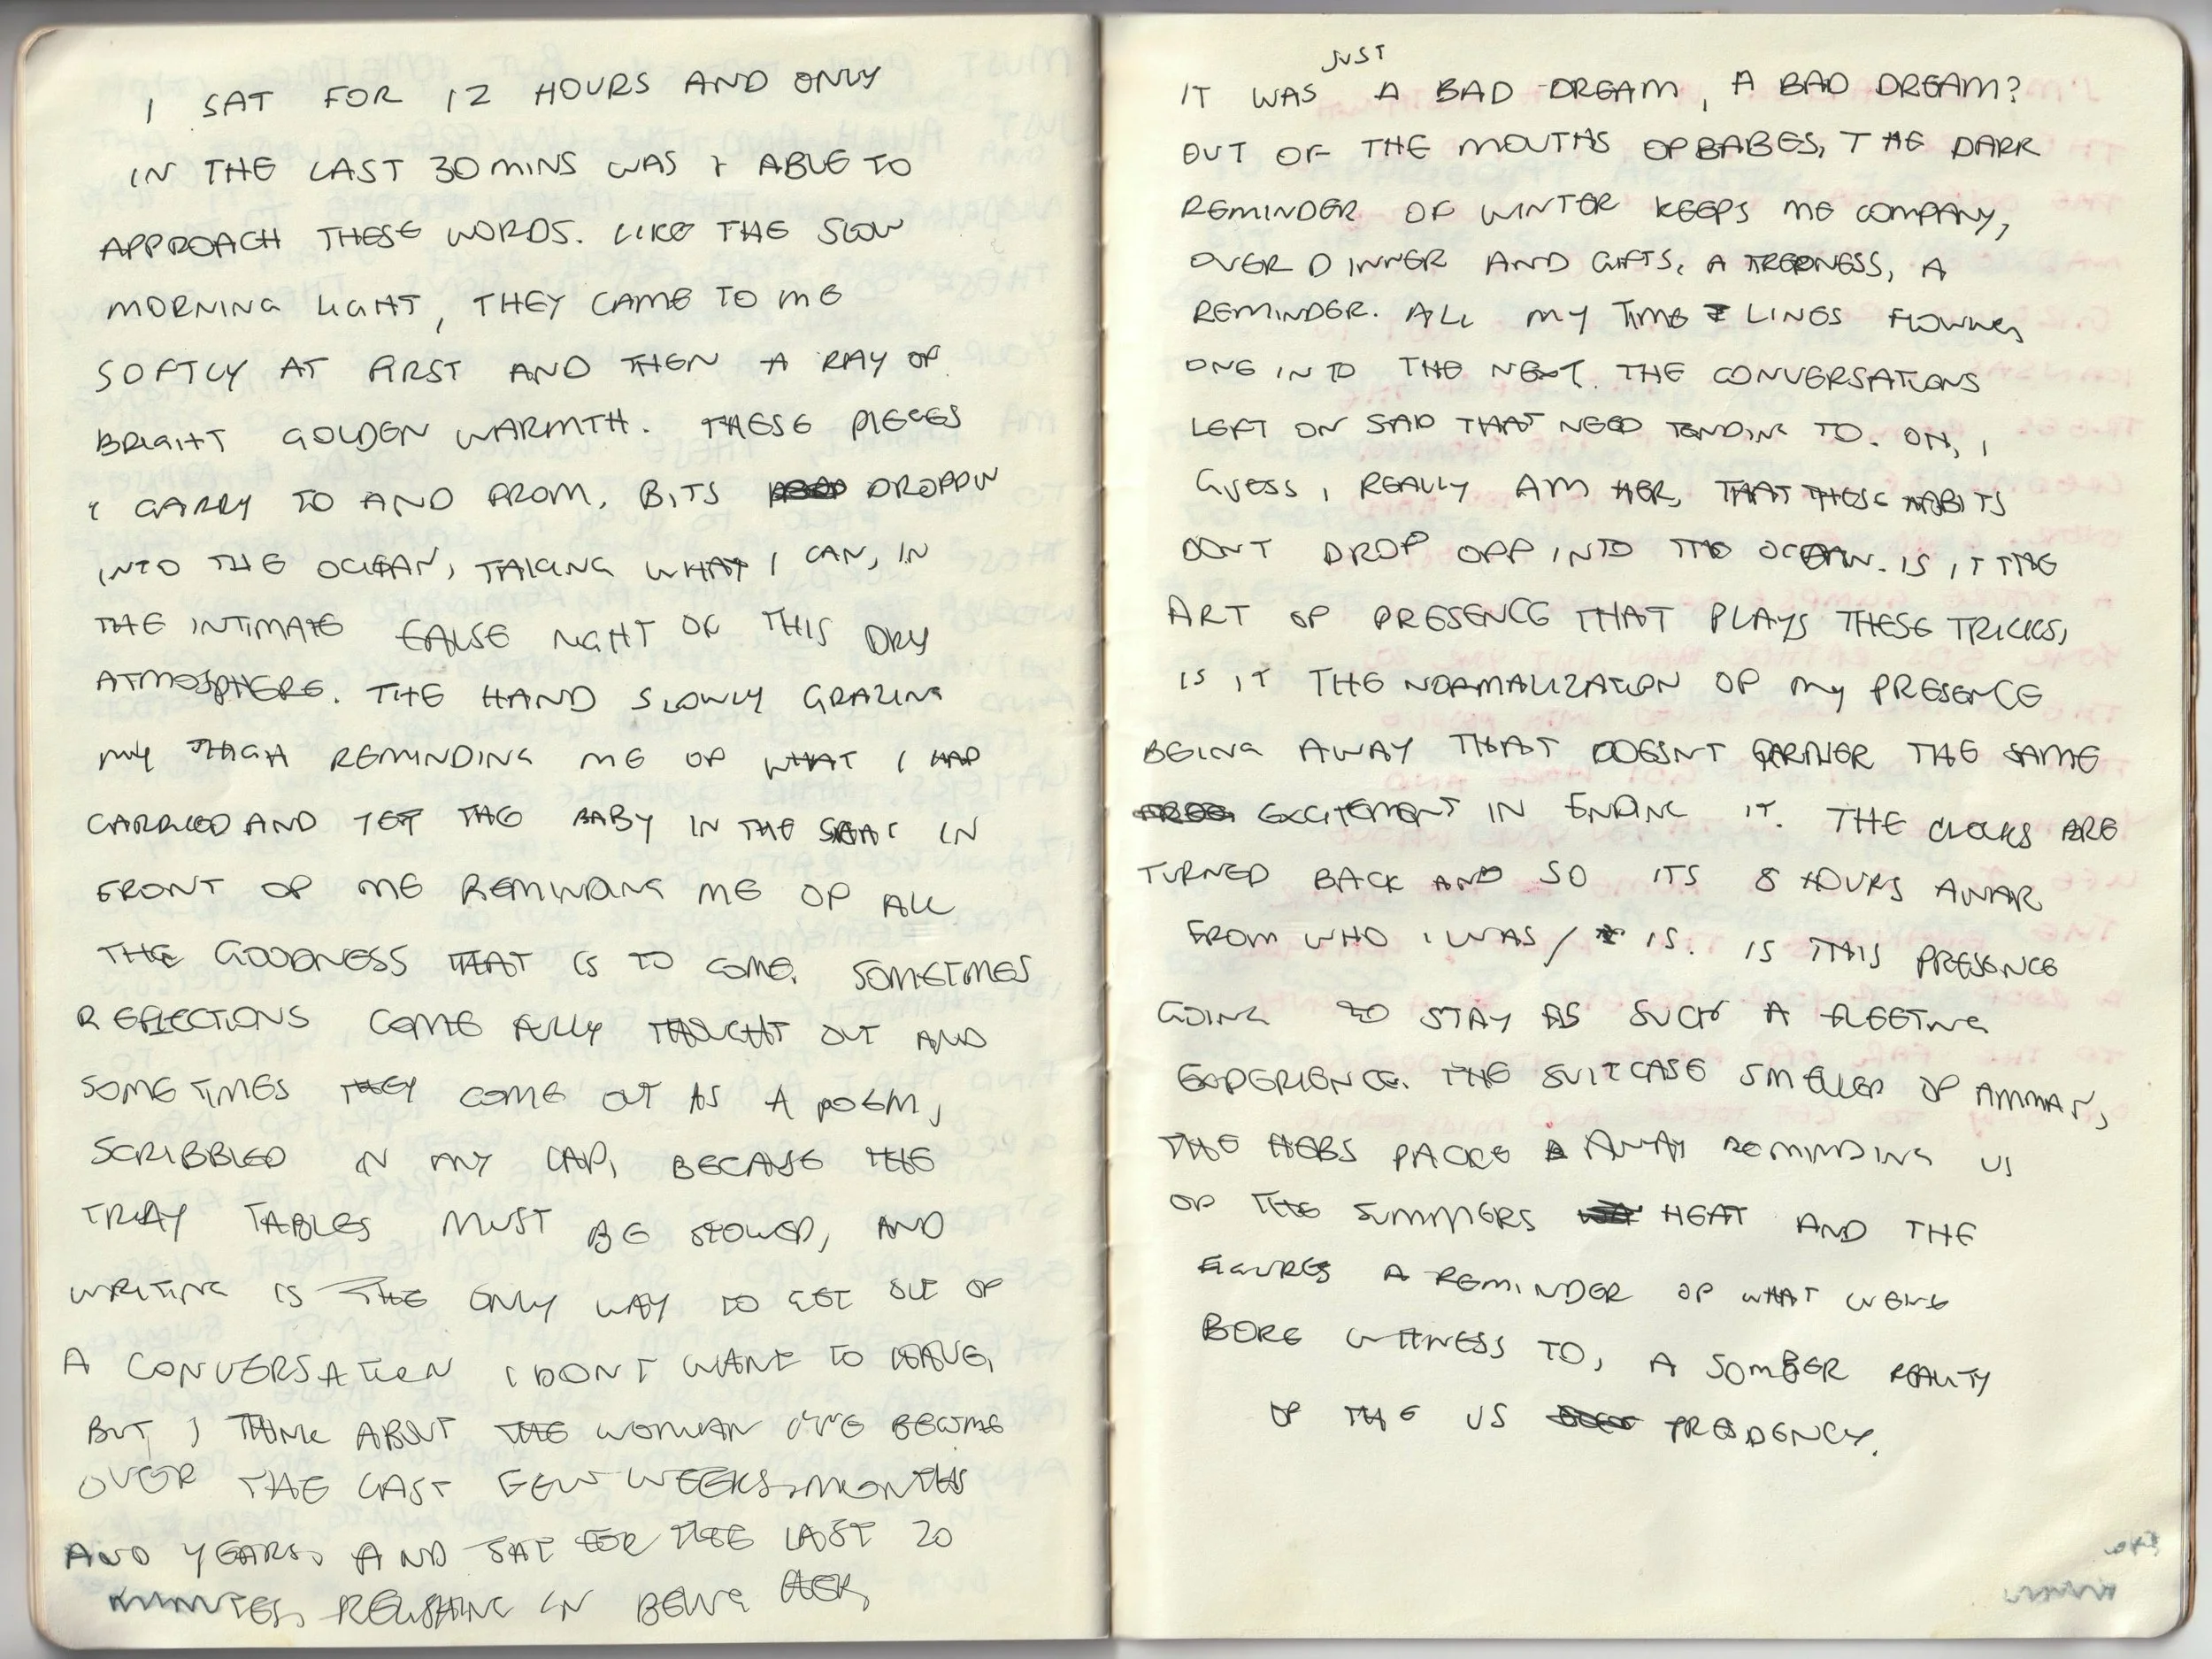 I SAT FOR 12 HOURS AND ONLY
IN THE LAST 30 MINS WAS I ABLE TO
APPROACH THESE WORDS. LIKE THE SLOW
MORNING LIGHT, THEY CAME TO ME
SOFTLY AT FIRST AND THEN A RAY OF
BRIGHT GOLDEN WARMTH. THESE PIECES
I CARRY TO AND FROM, BITS DROPPIN
INTO THE OCEAN, TAKING WHAT I CAN, IN
THE INTIMATE FALSE NIGHT OF THIS DRY
ATMOSPHERE. THE HAND SLOWLY GRAZING
MY THIGH REMINDING ME OF WHAT I HAD
CARRIED AND YET THE BABY IN THE SEAT IN
FRONT OF ME REMINDING ME OF ALL
THE GOODNESS THAT IS TO COME. SOMETIMES
REFLECTIONS COME FULLY THOUGHT OUT AND
SOMETIMES THEY COME OUT AS A POEM,
SCRIBBLED IN MY LAP, BECAUSE THE
TRAY TABLES MUST BE STOWED, AND
WRITING IS THE ONLY WAY TO GET OUT OF
A CONVERSATION I DONT WANT TO HAVE,
BUT I THINK ABOUT THE WOMAN I'VE BECOME
OVER THE LAST FEW WEEKS, MONTHS
AND YEARS, AND SAT FOR THE LAST 20
MINUTES, RELISHING IN BEING HER,
IT WAS JUST A BAD DREAM, A BAD DREAM?
OUT OF THE MOUTHS OF BABES, THE DARK
REMINDER OF WINTER KEEPS ME COMPANY,
OVER DINNER AND GIFTS, A A
REMINDER. ALL MY TIME LINES FLOWING
ONE INTO THE NEXT. THE CONVERSATIONS
LEFT ON SAID THAT NEED TENDING TO. OH, I
GUESS I REALLY AM HER, THAT THESE HABITS
DONT DROP OFF INTO THE OCEAN. IS IT THE
ART OF PRESENCE THAT PLAYS THESE TRICKS,
IS IT THE NORMALIZATION OF MY PRESENCE
BEING AWAY THAT DOESNT GARNER THE SAME
EXCITEMENT IN ENDING IT. THE CLOCKS ARE
TURNED BACK AND SO ITS 8 HOURS AWAR
FROM WHO I WAS / IS. IS THIS PRESENCE
GOING TO STAY AS SUCH A FLEETING
EXPERIENCE. THE SUITCASE SMELLED OF AMMAN,
THE HERBS PACKE AWAY REMINDING US
OF THE SUMMERS HEAT AND THE
FIGURES A REMINDER OF WHAT WEVE
BORE WITNESS TO, A SOMBER REALITY
OF THE US PRESDENCY.